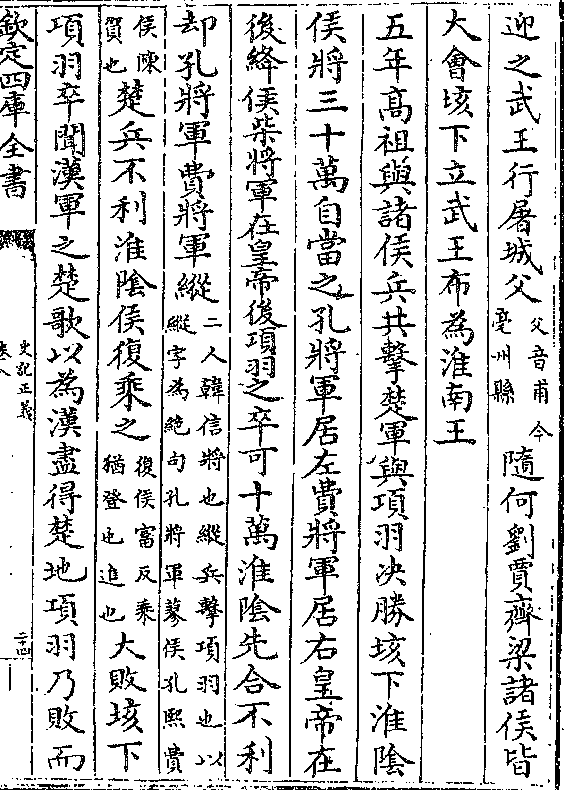 迎之武王行屠城父父音甫今亳州縣隨何劉賈齊梁諸侯皆
大會垓下立武王布為淮南王
五年高祖與諸侯兵共擊楚軍與項羽决勝垓下淮陰
侯將三十萬自當之孔將軍居左費將軍居右皇帝在
後絳侯柴將軍在皇帝後項羽之卒可十萬淮陰先合不利
却孔將軍費將軍縱二人韓信將也縱兵擊項羽也以縱字為絶句孔將軍蓼侯孔熙費
侯陳賀也楚兵不利淮陰侯復乘之復侯富反乘猶登也進也大敗垓下
項羽卒聞漢軍之楚歌以為漢盡得楚地項羽乃敗而
欽定四庫全書
史記正義
卷八
二十四